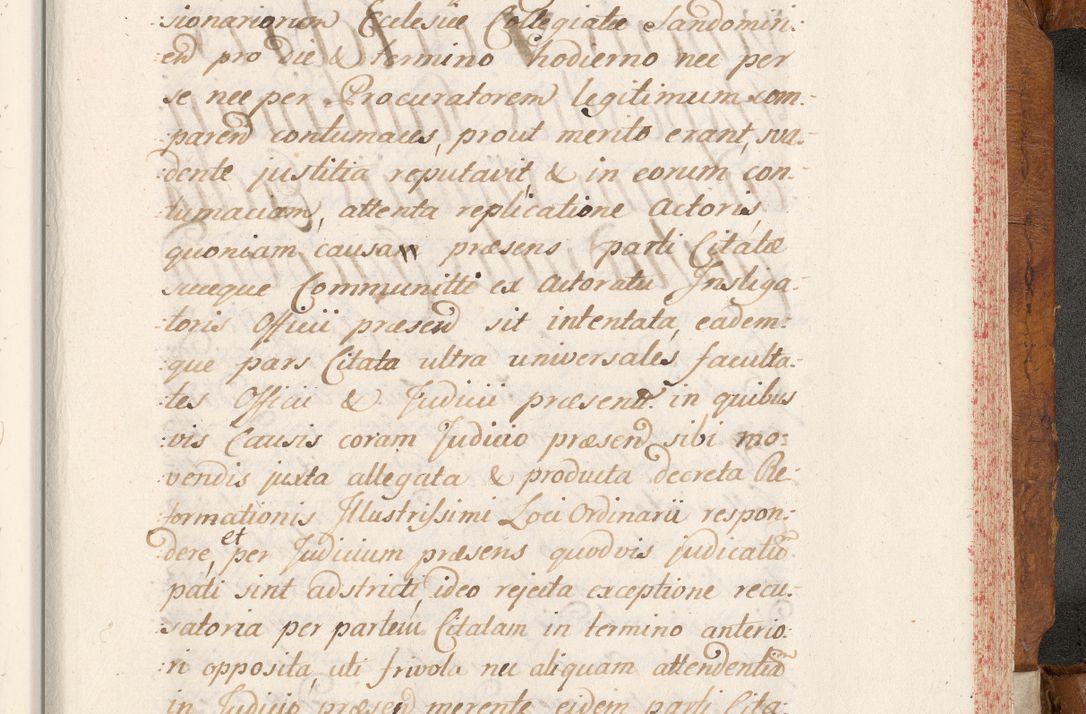 sionariorum Ecclesiæ Collegiatæ Sandomiri:
en pro die & termino hodierno nec per
se nec per Procuratorem legitimum com:
paren contumaces, prout merito erant, sua:
dente justitia reputavit, & in eorum con:
tumaciam, attenta replicatione Actoris
quoniam causam præsens parti Citatæ
suæque Communitti ex Actoratu Instiga:
toris Officii præsen sit intentata, eadem:
que pars Citata ultra universales faculta:
tes Officii & Judicii præsent: in quibus
vis Causis coram Judicio præsen sibi mo:
vendis juxta allegata & producta decreta Re:
formationis Illustrissimi Loci Ordinarii respon:
dere, et per Judicium præsens quodvis judicatū
pati sint adstricti, ideo rejecta exceptione recu:
satoria per partem Citatam in termino anterio:
ri opposita, uti frivola nec aliquam attendentiā
in Judicio præsen merente, eidem parti Cita: